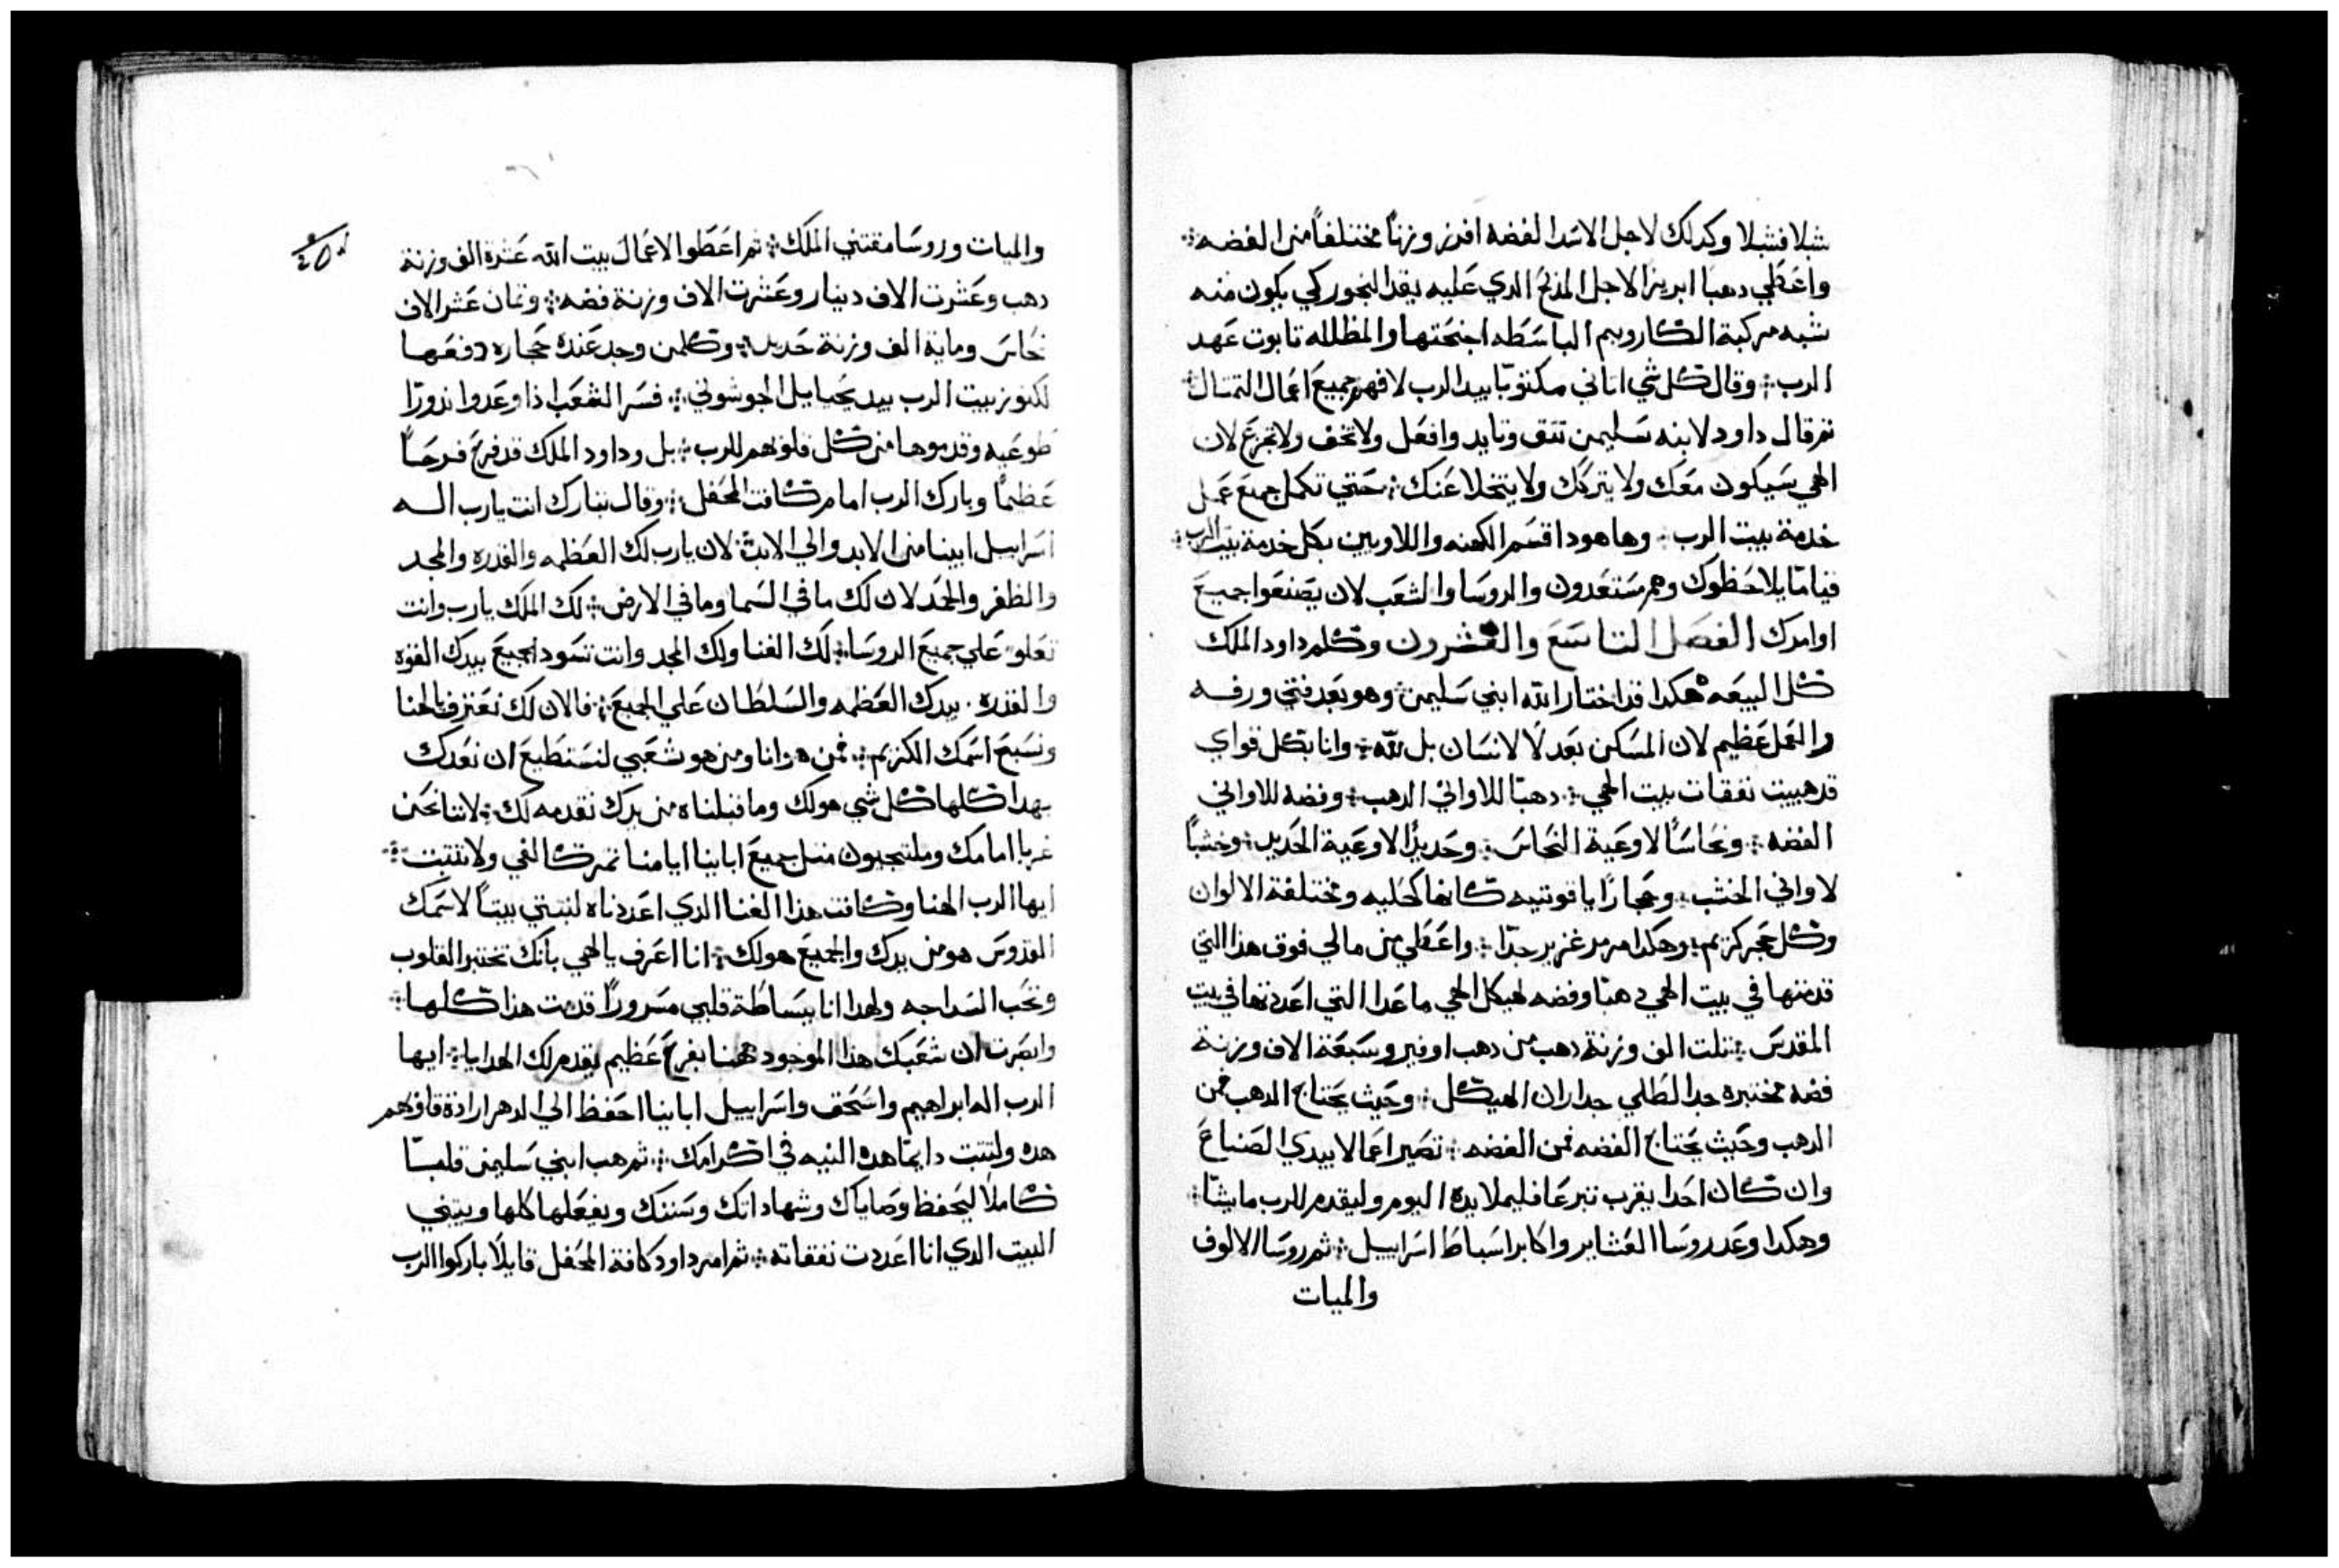 شبلا فشبلا وكدلك لاجل الاسدا لفضه افرز وزنًا مختلفاً من الفضه
واعطي دهبا ابريزا لاجل المدبح الدي عليه يقدا لبخور كي يكون منه
شبه مركبة الكاروبيم الباسطه اجنحتها والمظلله تابوت عهد
الرب وقال كل شي اتاني مكتوبًا بيد الرب لافهم جميع اعمال التمتال
تم قال داود لابنه سليمن تتق وتايد وافعل ولا تخف ولا تجزع لان
الهي سيكون معك ولا يتركك ولا يتخلا عنك حتي تكمل جميع عمل
خدمة بيت الرب وها هودا قسم الكهنه واللاويين بكل خدمة بيت الرب
قيامًا يلاحظوك وهم مستعدون والروسا والشعب لان يصنعوا جميع
اوامرك الفصل التاسع والعشرون وكلم داود الملك
كل البيعه هكدا قد اختار الله ابني سليمن وهو بعد فتي ورفه
والعمل عظيم لان المسكن بعد لا لانسان بل لله وانا بكل قواي
قد هييت نفقات بيت الهي دهبًا للاواني الدهب وفضه للاواني
الفضه ونحاسًا لاوعية النحاس وحديدًا لاوعية الحديد وخشباً
لاواني الخشب وحجارًا ياقوتيه كانها كحليه ومختلفة الالوان
وكل حجر كريم وهكدا مرمر غزير جدًا واعطي من مالي فوق هذا التي
قدمتها في بيت الهي دهبًا وفضه لهيكل الهي ما عدا التي اعددتها في بيت
المقدس تلت الف وزنة دهب من دهب اوفير وسبعة الاف وزنة
فضه مختبره جدا لطلي جداران الهيكل وحيث يحتاج الدهب فمن
الدهب وحيث يحتاج الفضه فمن الفضه تصير اعمالا بيدي الصناع
وان كان احدا يقرب تبرعا فليملا يده اليوم وليقدم للرب ماشا
وهكدا وعد روسا العشاير واكابر اسباط اسراييل تم روسا الالوف
والميات
والميات وروسا مقتني الملك تم اعطوا لاعمال بيت الله عشرة الف وزنة
دهب وعشرت الاف دينار وعشرت الاف وزنة فضه وتمان عشر الاف
نحاس وماية الف وزنة حديد وكلمن وجد عنده حجاره دفعها
لكنوز بيت الرب بيد يحيايل الجوشوني فسر الشعب اذا وعدوا نذورًا
طوعيه وقدموها من كل قلوبهم للرب بل وداود الملك قد فرح فرحًا
عظيمًا وبارك الرب امام كافت المحفل وقال تبارك انت يارب اله
اسراييل ابينا من الابد والي الابد لان يارب لك العظمه والقدره والمجد
والظفر والحمد لان لك ما في السما وما في الارض لك الملك يارب وانت
تعلو علي جميع الروسا لك الغنا ولك المجد وانت تسود الجميع بيدك القوه
والقدره بيدك العظمه والسلطان علي الجميع فالان لك نعترف يالهنا
ونسبح اسمك الكريم فمن هو انا ومن هو شعبي لنستطيع ان نعدك
بهدا كلها كل شي هو لك وما قبلناه من يدك نقدمه لك لاننا نحن
غربا امامك وملتجيون متل جميع ابابنا ايامنا تمر كالفي ولا تتبت
ايها الرب الهنا وكافت هذا الغنا الدي اعددناه لنبتني بيتًا لاسمك
القدوس هو من يدك والجميع هو لك انا اعرف يالهي بانك تختبر القلوب
وتحب السداجه ولهدا انا ببساطة قلبي مسرورًا قدمت هذا كلها
وابصرت ان شعبك هذا الموجود ههنا بفرح عظيم يقدم لك الهدايا ايها
الرب اله ابراهيم واسحق واسراييل ابابنا احفظ الي الدهر ارادة قلوبهم
هده ولتتبت دايمًا هده النيه في اكرامك تم هب ابني سليمن قلبًا
كاملًا ليحفظ وصاياك وشهاداتك وسننك ويفعلها كلها ويبتني
البيت الدي انا اعددت نفقاته تم امر داود كافة المحفل قايلًا باركوا الرب